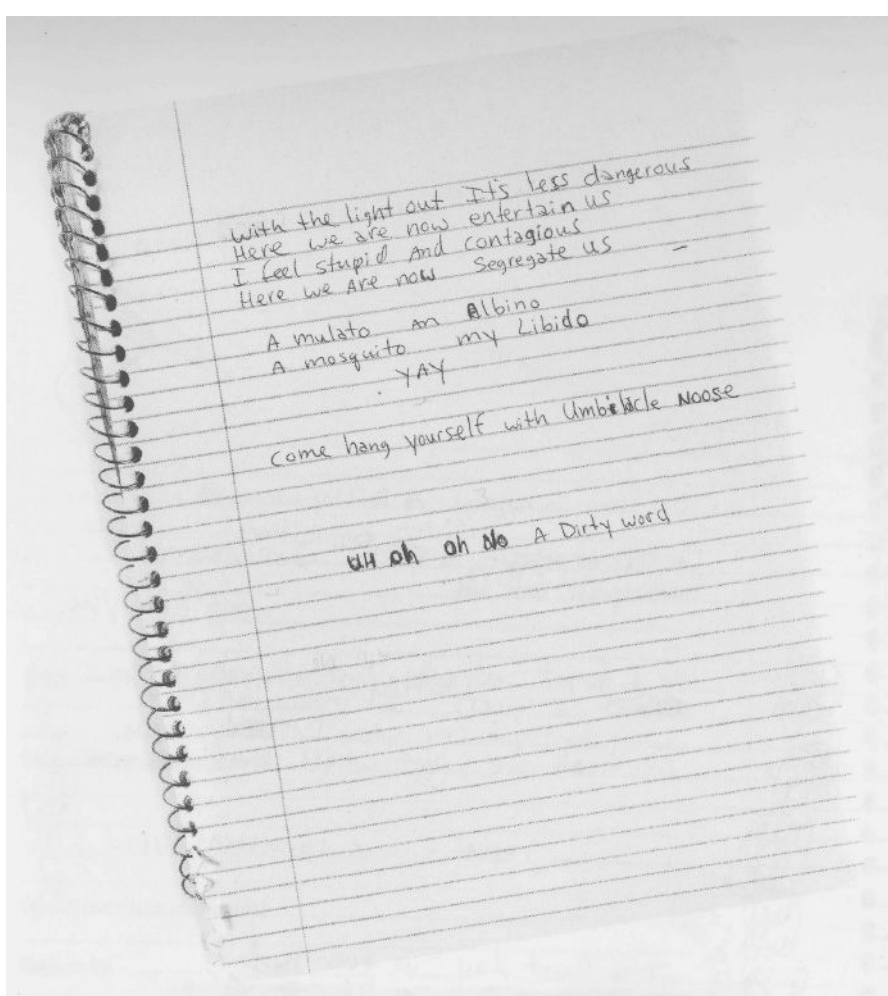 with the light out It's less dangerous
Here we are now entertain us
I feel stupid And contagious
Here we Are now Segregate us –
A mulato an Albino
A mosquito my Libido
YAY
come hang yourself with Umbilicle Noose
UH oh oh No A Dirty word